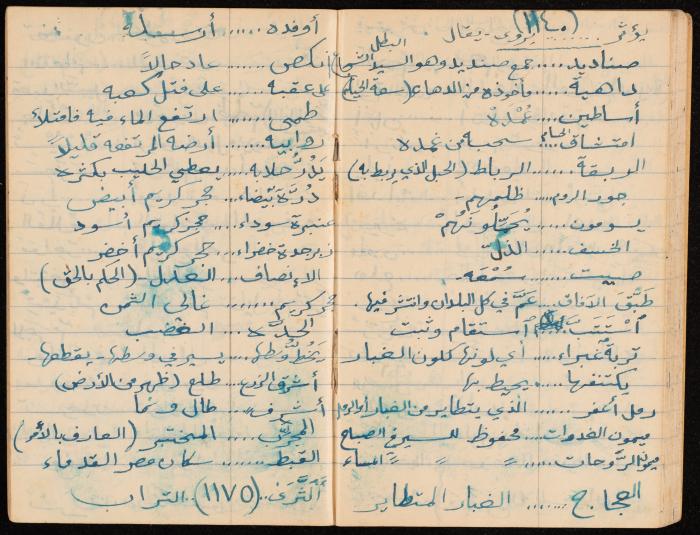 (١١٤٠)
يؤثر ........ يروى - يقال
البطل
صناديد ..... جمع صنديد وهو السيد الشجاع
داهية ..... مأخوذه من الدهاء (سعة الحيلة)
أساطين ..... عُمْدَة
امتشاق الحسام .... سحبه من غمده
الربقة ...... الرباط (الحبل الذي يربط به)
جور الروم .... ظلمهم -
يسومون ..... يُحَمِّلُونَهُمْ
الخسف ..... الذلّ
صيت ....... سُمْعَه -
طَبَّقَ الآفاق .... عَمَّ في كل البلدان وانتشر فيها.
اسْتَتَبَّ .... استقام وثبت
تربة غبراء ..... أي لونها كلون الغبار
يكتنفها .... يحيط بها
رمل أعفر ...... الذي يتطاير من الغبار أو الرمل
ميمون الغدوات .... محفوظ للسير في الصباح
ميمون الرَّوحات ... = = = المساء
العجاج ....... الغبار المتطاير
أوفده ...... أرسله
نكص ....... عاد حالاً
على عقبه ....... على فتل كعبه
طمى ....... ارتفع الماء فيه فامتلأ
رابيه ...... أرضه المرتفعه قليلاً
يَدُرُّ حلابه .... يعطي الحليب بكثرة
دُرَّة بَيْضاء ... حجر كريم أبيض
عنبرة سوداء ... حجر كريم أسود
زبرجدة خضراء .. حجر كريم أخضر
الإنصاف ..... العدل (الحكم بالحق)
حجر كريم ....... غالى الثمن
الحِدَّة ..... الغضب
يَخُطُّ وَسْطَها .. يسير في وسطها - يقطعها -
أشرق الزرع .... طلع (ظهر من الأرض)
أشرف .... طال ونما
المجرِّب ..... المختبر (العارف بالأمر)
القبط ...... سكان مصر القدماء
الثَّرَى .. (١١٧٥) .. التراب